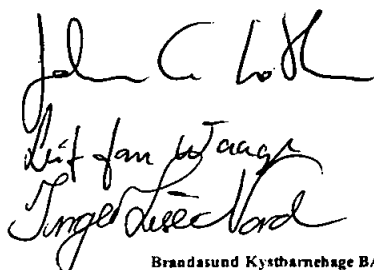 John C Loth
Leif Jan Waage
Inger Lise Nord
Brandasund Kystbarnehage BA